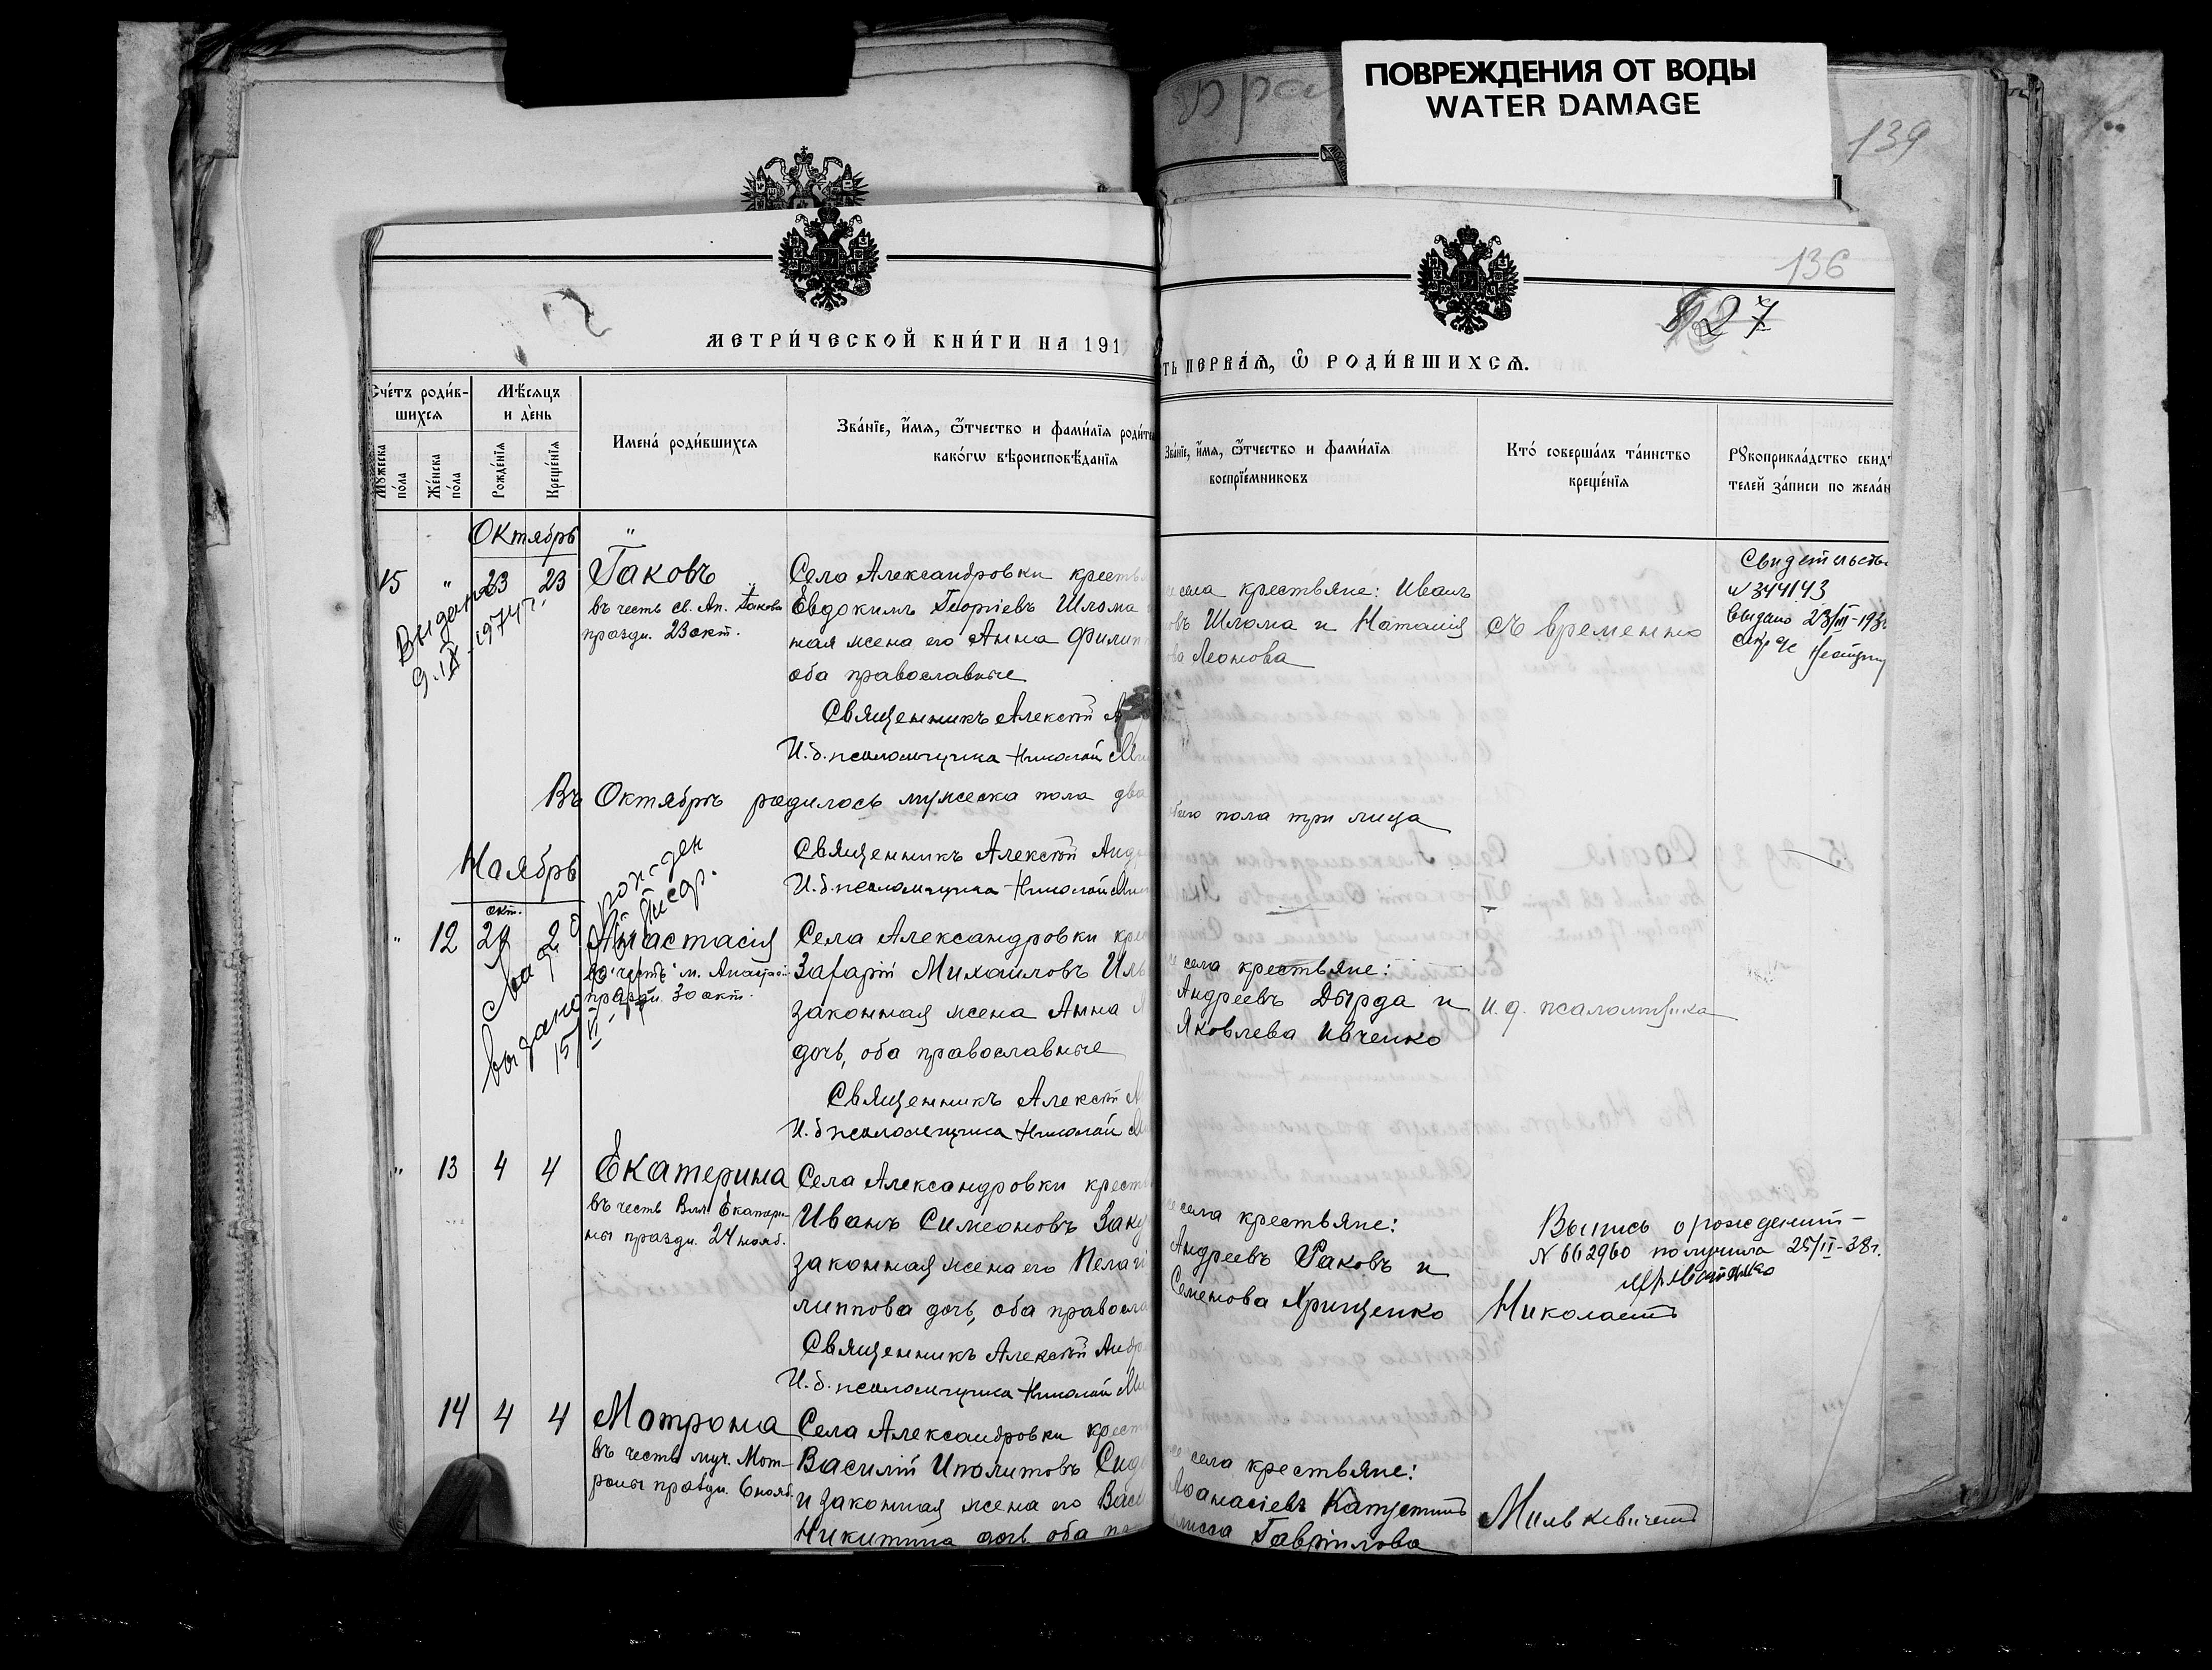 ПОВРЕЖДЕНИЯ ОТ ВОДЫ
WATER DAMAGE
139
136
27
МЕТРИ́ЧЕСКОЙ КНИ́ГИ НА 191
ть ПЕРВА́Ѧ, Ѡ҆ РОДИ́ВШИХСѦ.
Сче́тъ роди́в-
шихсѧ
Мꙋ́жеска
по́ла
Же́нска
по́ла
Мѣ́сѧцъ
и де́нь
Рожде́нїѧ
Креще́нїѧ
Имена́ роди́вшихсѧ
Зва́нїе, и҆́мѧ, ѻ҆́тчество и фами́лїѧ роди́те
како́гѡ вѣроисповѣ́данїѧ
Зва́нїе, и҆́мѧ, ѻ҆́тчество и фами́лїѧ
воспрїе́мниковъ
Кто́ соверша́лъ та́инство
креще́нїѧ
Рꙋкоприкла́дство свид
телей за́писи по жела́н
Октябрь
15 " 23 23
Выдано
9.IX-1974 г.
Іаковъ
въ честь св. Ап. Іакова
празди. 23 окт.
Села Александровки крестья
Евдокимъ Георгіевъ Шлома
ная жена его Анна Филип
оба православные
Священникъ Алексѣй
И. д. псаломщика Николай Ми
села крестьяне: Иванъ
овъ Шлома и Наталія
ова Леонова
съ временно
Свидетельство
№ 344143
выдано 23/III-193
Въ Октябрѣ родилось мужеска пола два
обоего пола три лица
Священникъ Алексѣй Андр
И. д. псаломщика Николай Ми
Ноябрь
окт.
" 12 29 2
выдано
15/VI-
Анастасія
въ честь м. Анастасіи
празди. 30 окт.
Села Александровки кре
Захарій Михаиловъ Иль
законная жена Анна
дочь, оба православные
Священникъ Алексѣй А
И. д. псаломщика Николай М
села крестьяне:
Андреевъ Дырда и
Яковлева Ивченко
и. д. псаломщика
" 13 4 4
Екатерина
въ честь Влм. Екатери-
ны празди. 24 нояб.
Села Александровки крест
Иванъ Симеоновъ Зак
законная жена его Пелагі
липпова дочь, оба правосла
Священникъ Алексѣй Андр
И. д. псаломщика Николай Ми
села крестьяне:
Андреевъ Раковъ и
Семенова Хрищенко
Николаемъ
Выпись о рождении-
№ 662960 получила 25/II-38г.
14 4 4
Матрона
въ честь муч. Мат-
роны празди. 6 нояб.
Села Александровки крест
Василій Иполитовъ Сид
и законная жена его Васи
Никитина дочь оба пр
села крестьяне:
Афанасіевъ
Гавріилова
Милькевичемъ